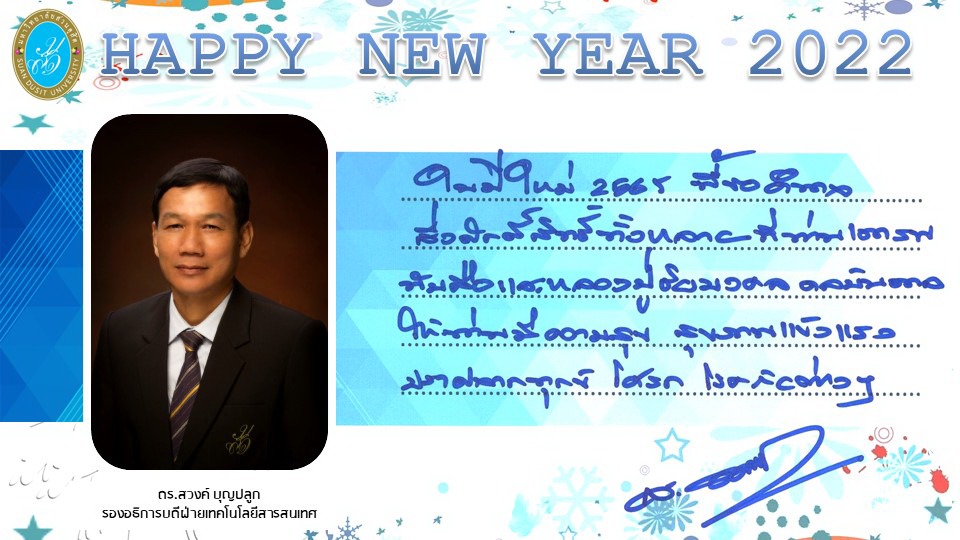 มหาวิทยาลัยสวนดุสิต
SUAN DUSIT UNIVERSITY
HAPPY NEW YEAR 2022
ในปีใหม่ 2565 นี้ขอ
สิ่งศักดิ์สิทธิ์ทั้งหลาย ที่ท่านเคารพ
นับถือและหลวงปู่ ดลบันดาล
ให้ท่านมีความสุข สุขภาพแข็งแรง
ปราศจากทุกข์ โศรก โรคภัยต่างๆ
ดร.สวงค์ บุญปลูก
รองอธิการบดีฝ่ายเทคโนโลยีสารสนเทศ